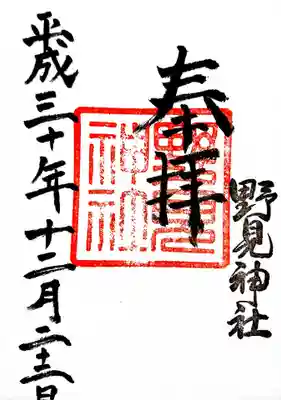 奉拝
野見神社
野見
神社
平成三十年十二月二十三日